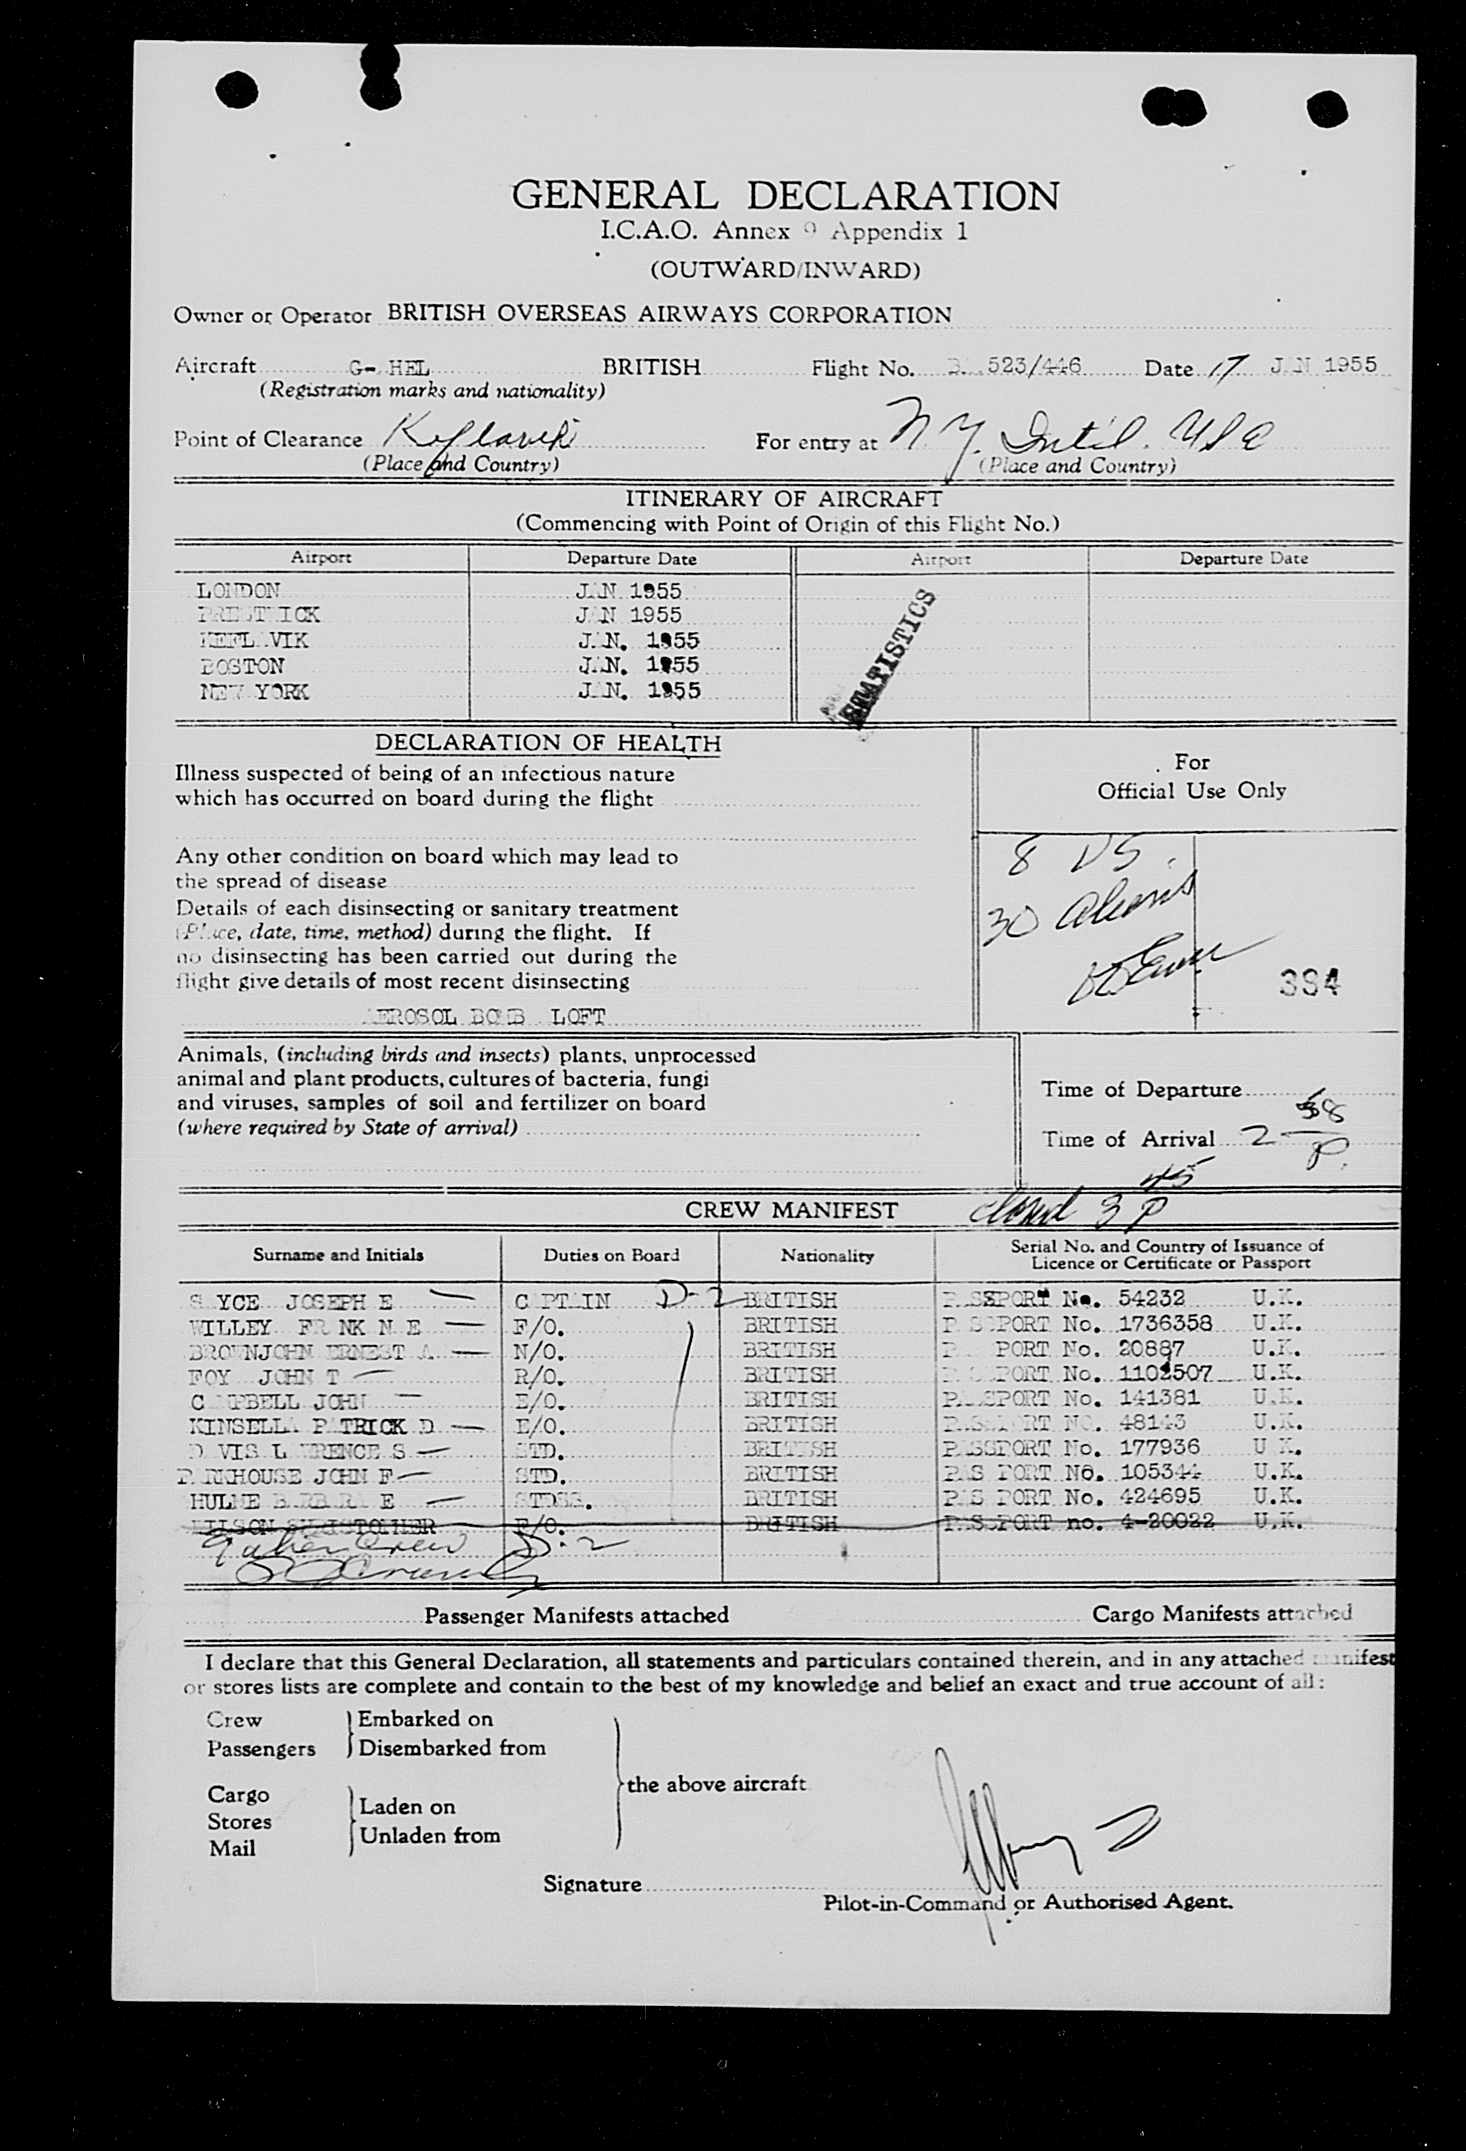 GENERAL DECLARATION
I.C.A.O. Annex 9 Appendix 1
(OUTWARD/INWARD)
Owner or Operator BRITISH OVERSEAS AIRWAYS CORPORATION
Aircraft G- HEL BRITISH Flight No. 523/446 Date 17 JAN 1955
(Registration marks and nationality)
Point of Clearance Keflavik For entry at N.Y. Int'l. USA
(Place and Country) (Place and Country)
ITINERARY OF AIRCRAFT
(Commencing with Point of Origin of this Flight No.)
Airport Departure Date Airport Departure Date
LONDON JAN 1955
PRESTWICK JAN 1955
KEFLAVIK JAN. 1955
BOSTON JAN. 1955
NEW YORK JAN. 1955
STATISTICS
DECLARATION OF HEALTH
Illness suspected of being of an infectious nature
which has occurred on board during the flight
For
Official Use Only
Any other condition on board which may lead to
the spread of disease
Details of each disinsecting or sanitary treatment
(Place, date, time, method) during the flight. If
no disinsecting has been carried out during the
flight give details of most recent disinsecting
AEROSOL BOMB LOFT
8 US
30 Aliens
394
Animals, (including birds and insects) plants, unprocessed
animal and plant products, cultures of bacteria, fungi
and viruses, samples of soil and fertilizer on board
(where required by State of arrival)
Time of Departure
Time of Arrival 2 58 P.
CREW MANIFEST closed 3 45 P
Surname and Initials Duties on Board Nationality Serial No. and Country of Issuance of
Licence or Certificate or Passport
SAYCE JOSEPH E CAPTAIN D-2 BRITISH PASSPORT No. 54232 U.K.
WILLEY FRANK N E F/O. BRITISH PASSPORT No. 1736358 U.K.
BROWNJOHN ERNEST A N/O. BRITISH PASSPORT No. 20887 U.K.
FOY JOHN T R/O. BRITISH PASSPORT No. 1102507 U.K.
CAMPBELL JOHN E/O. BRITISH PASSPORT No. 141381 U.K.
KINSELLA PATRICK D E/O. BRITISH PASSPORT NO. 48143 U.K.
DAVIS LAWRENCE S STD. BRITISH PASSPORT No. 177936 U.K.
PARKHOUSE JOHN F STD. BRITISH PASSPORT No. 105344 U.K.
HULME BARBARA E STDSS. BRITISH PASSPORT No. 424695 U.K.
WILSON CHRISTOPHER F/O. BRITISH PASSPORT no. 4-20022 U.K.
9 alien crew D-2
Passenger Manifests attached Cargo Manifests attached
I declare that this General Declaration, all statements and particulars contained therein, and in any attached manifest
or stores lists are complete and contain to the best of my knowledge and belief an exact and true account of all:
Crew Embarked on
Passengers Disembarked from
the above aircraft
Cargo
Stores Laden on
Mail Unladen from
Signature
Pilot-in-Command or Authorised Agent.